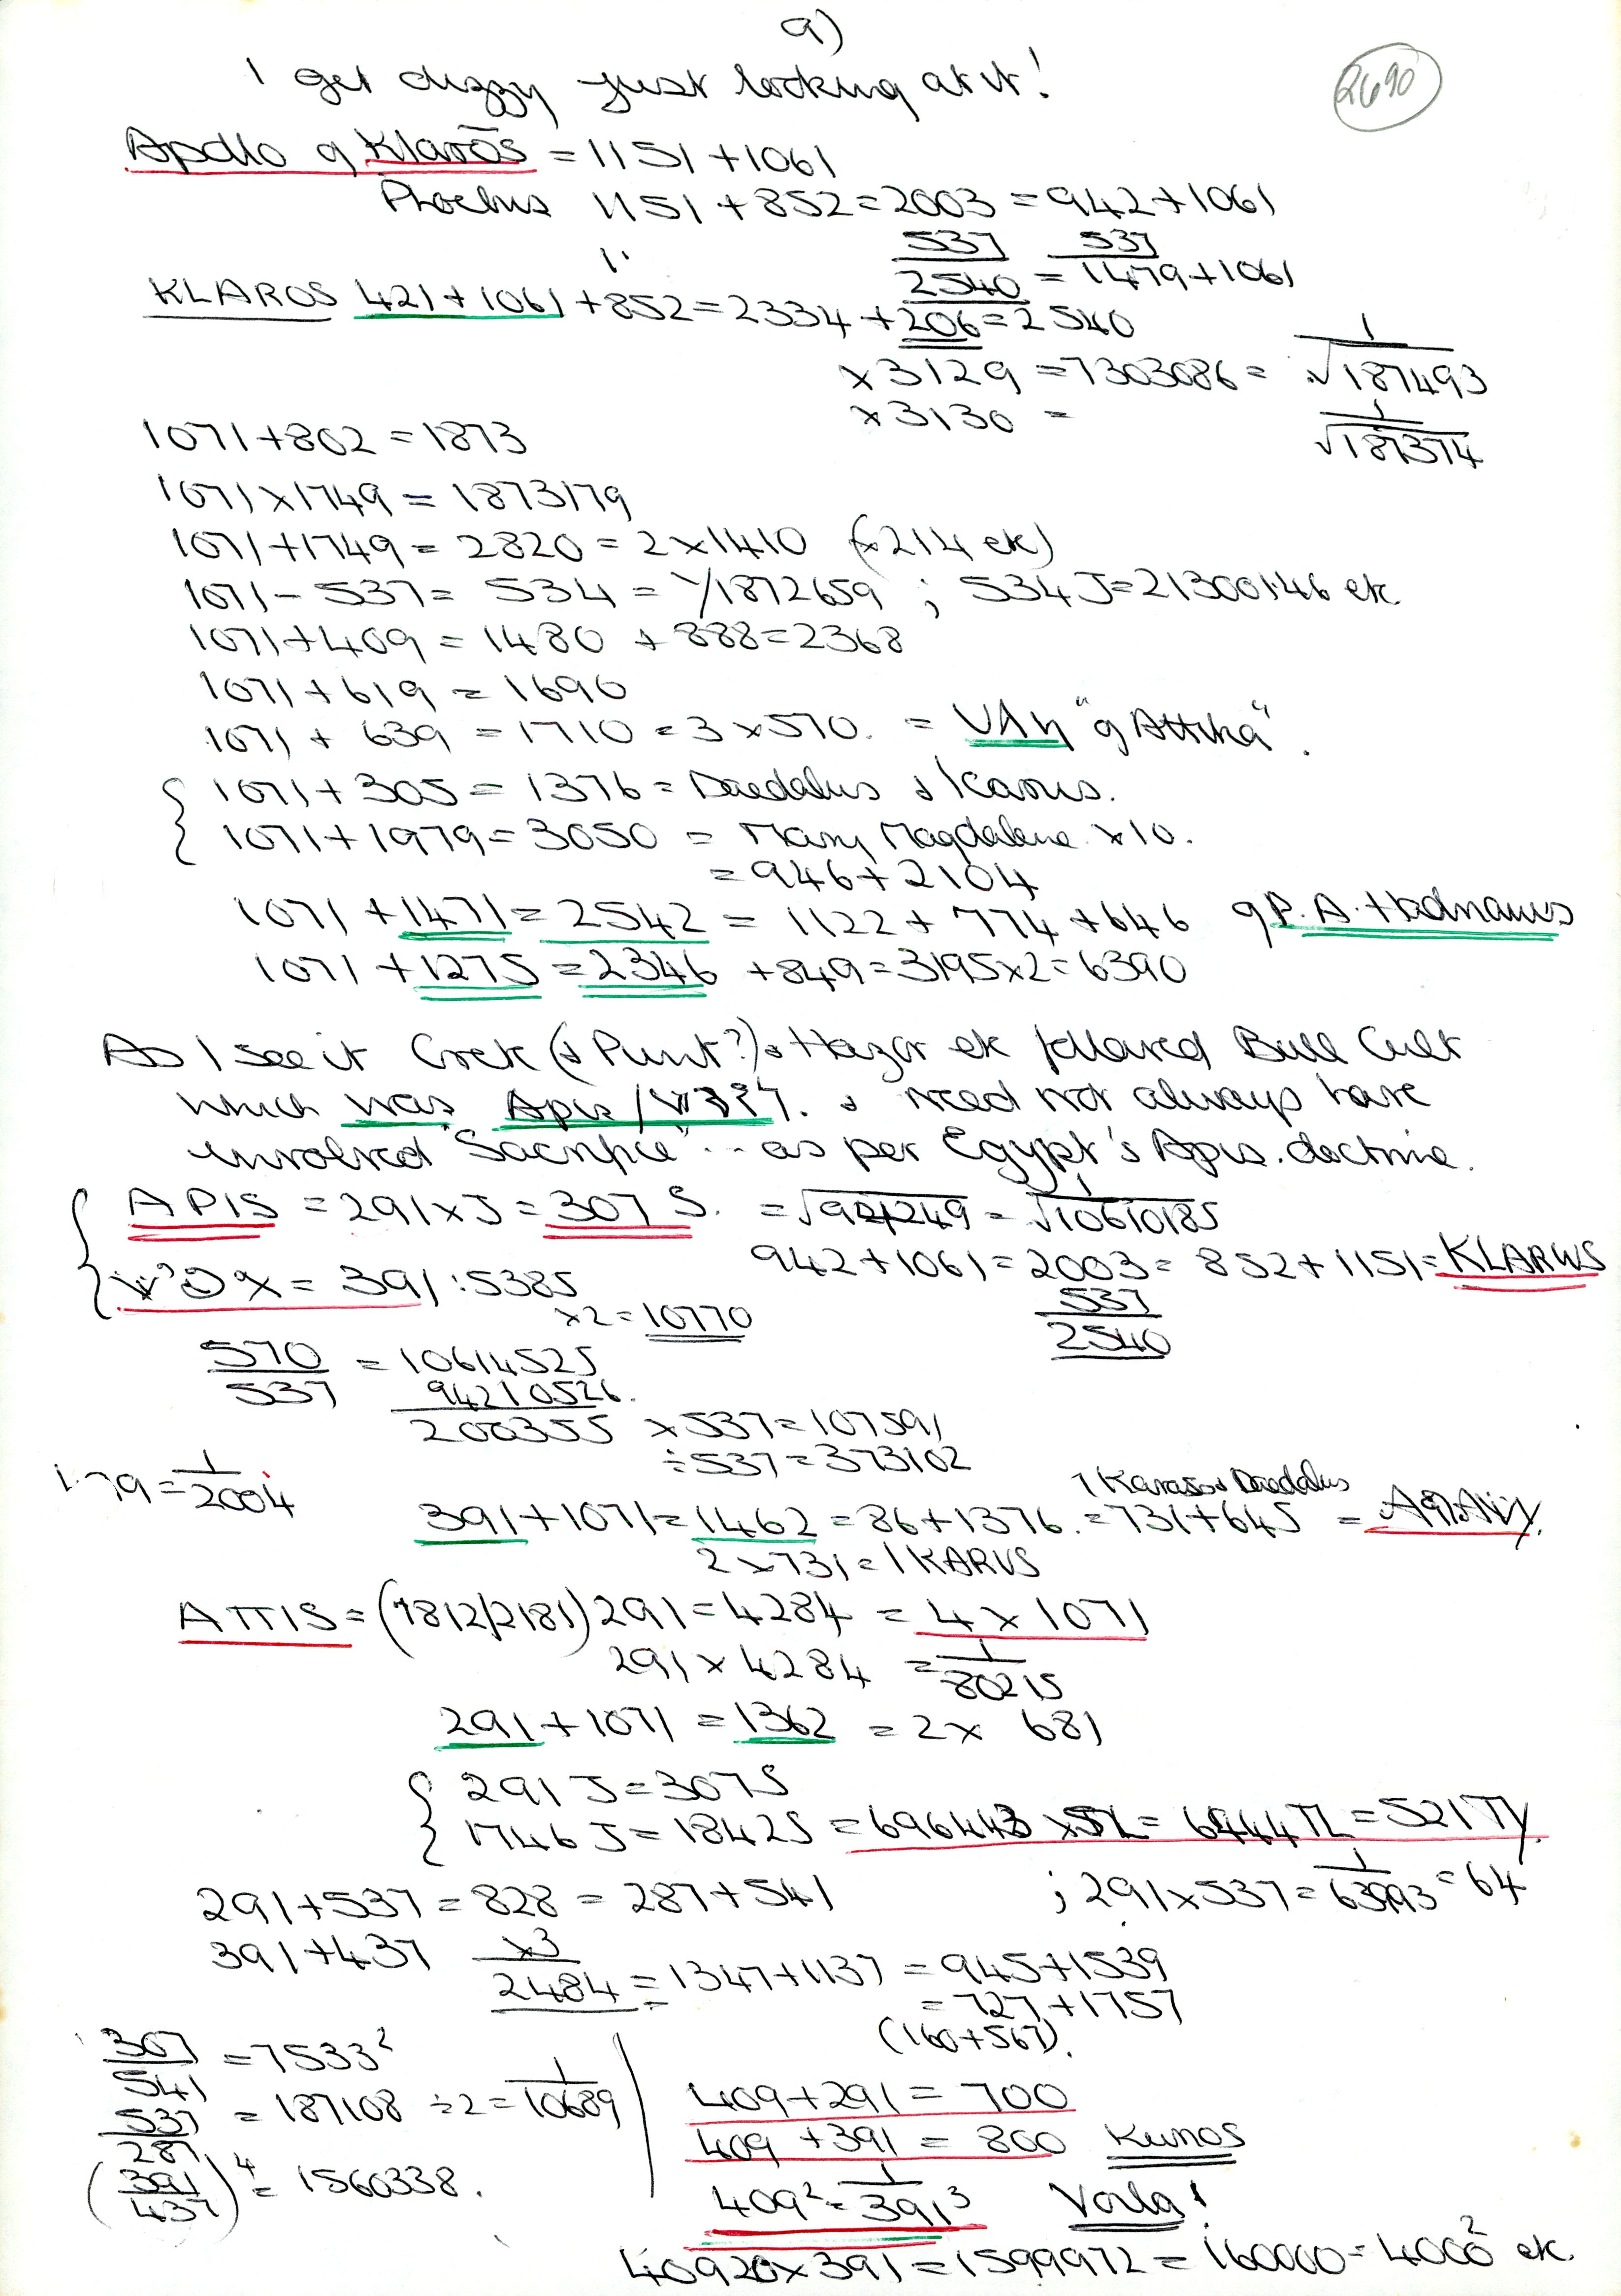 a)
I get dizzy just looking at it!
2690
Apollo of Klarōs = 1151 + 1061
Phoebus 1151 + 852 = 2003 = 942 + 1061
537 537
2540 = 1479 + 1061
KLAROS 421 + 1061 + 852 = 2334 + 206 = 2540
x 3129 = 7303086 = 1/√187493
x 3130 = 1/√187374
1071 + 802 = 1873
1071 x 1749 = 1873179
1071 + 1749 = 2820 = 2 x 1410 (x 214 etc)
1071 - 537 = 534 = 1/1872659 ; 534 J = 21300146 etc.
1071 + 409 = 1480 + 888 = 2368
1071 + 619 = 1690
1071 + 639 = 1710 = 3 x 570. = "of Attika".
1071 + 305 = 1376 = Daedalus & Ikarus.
1071 + 1979 = 3050 = Mary Magdalene x 10.
= 946 + 2104
1071 + 1471 = 2542 = 1122 + 774 + 646 of P. A. Hadrianus
1071 + 1275 = 2346 + 849 = 3195 x 2 = 6390
As I see it Crete (& Punt?) & Hazor etc followed Bull Cult
which was Apis / . & need not always have
involved "Sacrifice" .. as per Egypt's Apis. doctrine.
APIS = 291 x J = 307 S. = √ 249 = 1/√10610185
942 + 1061 = 2003 = 852 + 1151 = KLARWS
= 391 : 5385
537
x 2 = 10770
2540
570/537 = 10614525
94210526.
200355 x 537 = 107591
÷ 537 = 373102
1.79 = 1/2004
Ikaros & Daedalus
391 + 1071 = 1462 = 86 + 1376. = 731 + 645 =
2 x 731 = IKARUS
ATTIS = (1812/2181) 291 = 4284 = 4 x 1071
291 x 4284 = 1/80215
291 + 1071 = 1362 = 2 x 681
291 J = 307 S
1746 J = 1842 S = 696443 x = 6444 TL = 521 Ty.
291 + 537 = 828 = 287 + 541 ; 291 x 537 = 1/63993 = 64
391 + 437 x3
2484 = 1347 + 1137 = 945 + 1539
= 727 + 1757
(160 + 567).
307/541 = 7533²
537/287 = 187108 ÷ 2 = 1/10689
(391/437)⁴ = 1560338.
409 + 291 = 700
409 + 391 = 800 Kunos
409² = 1/391³ Voila!
409200 x 391 = 1599972 = 160000 = 4000² etc.